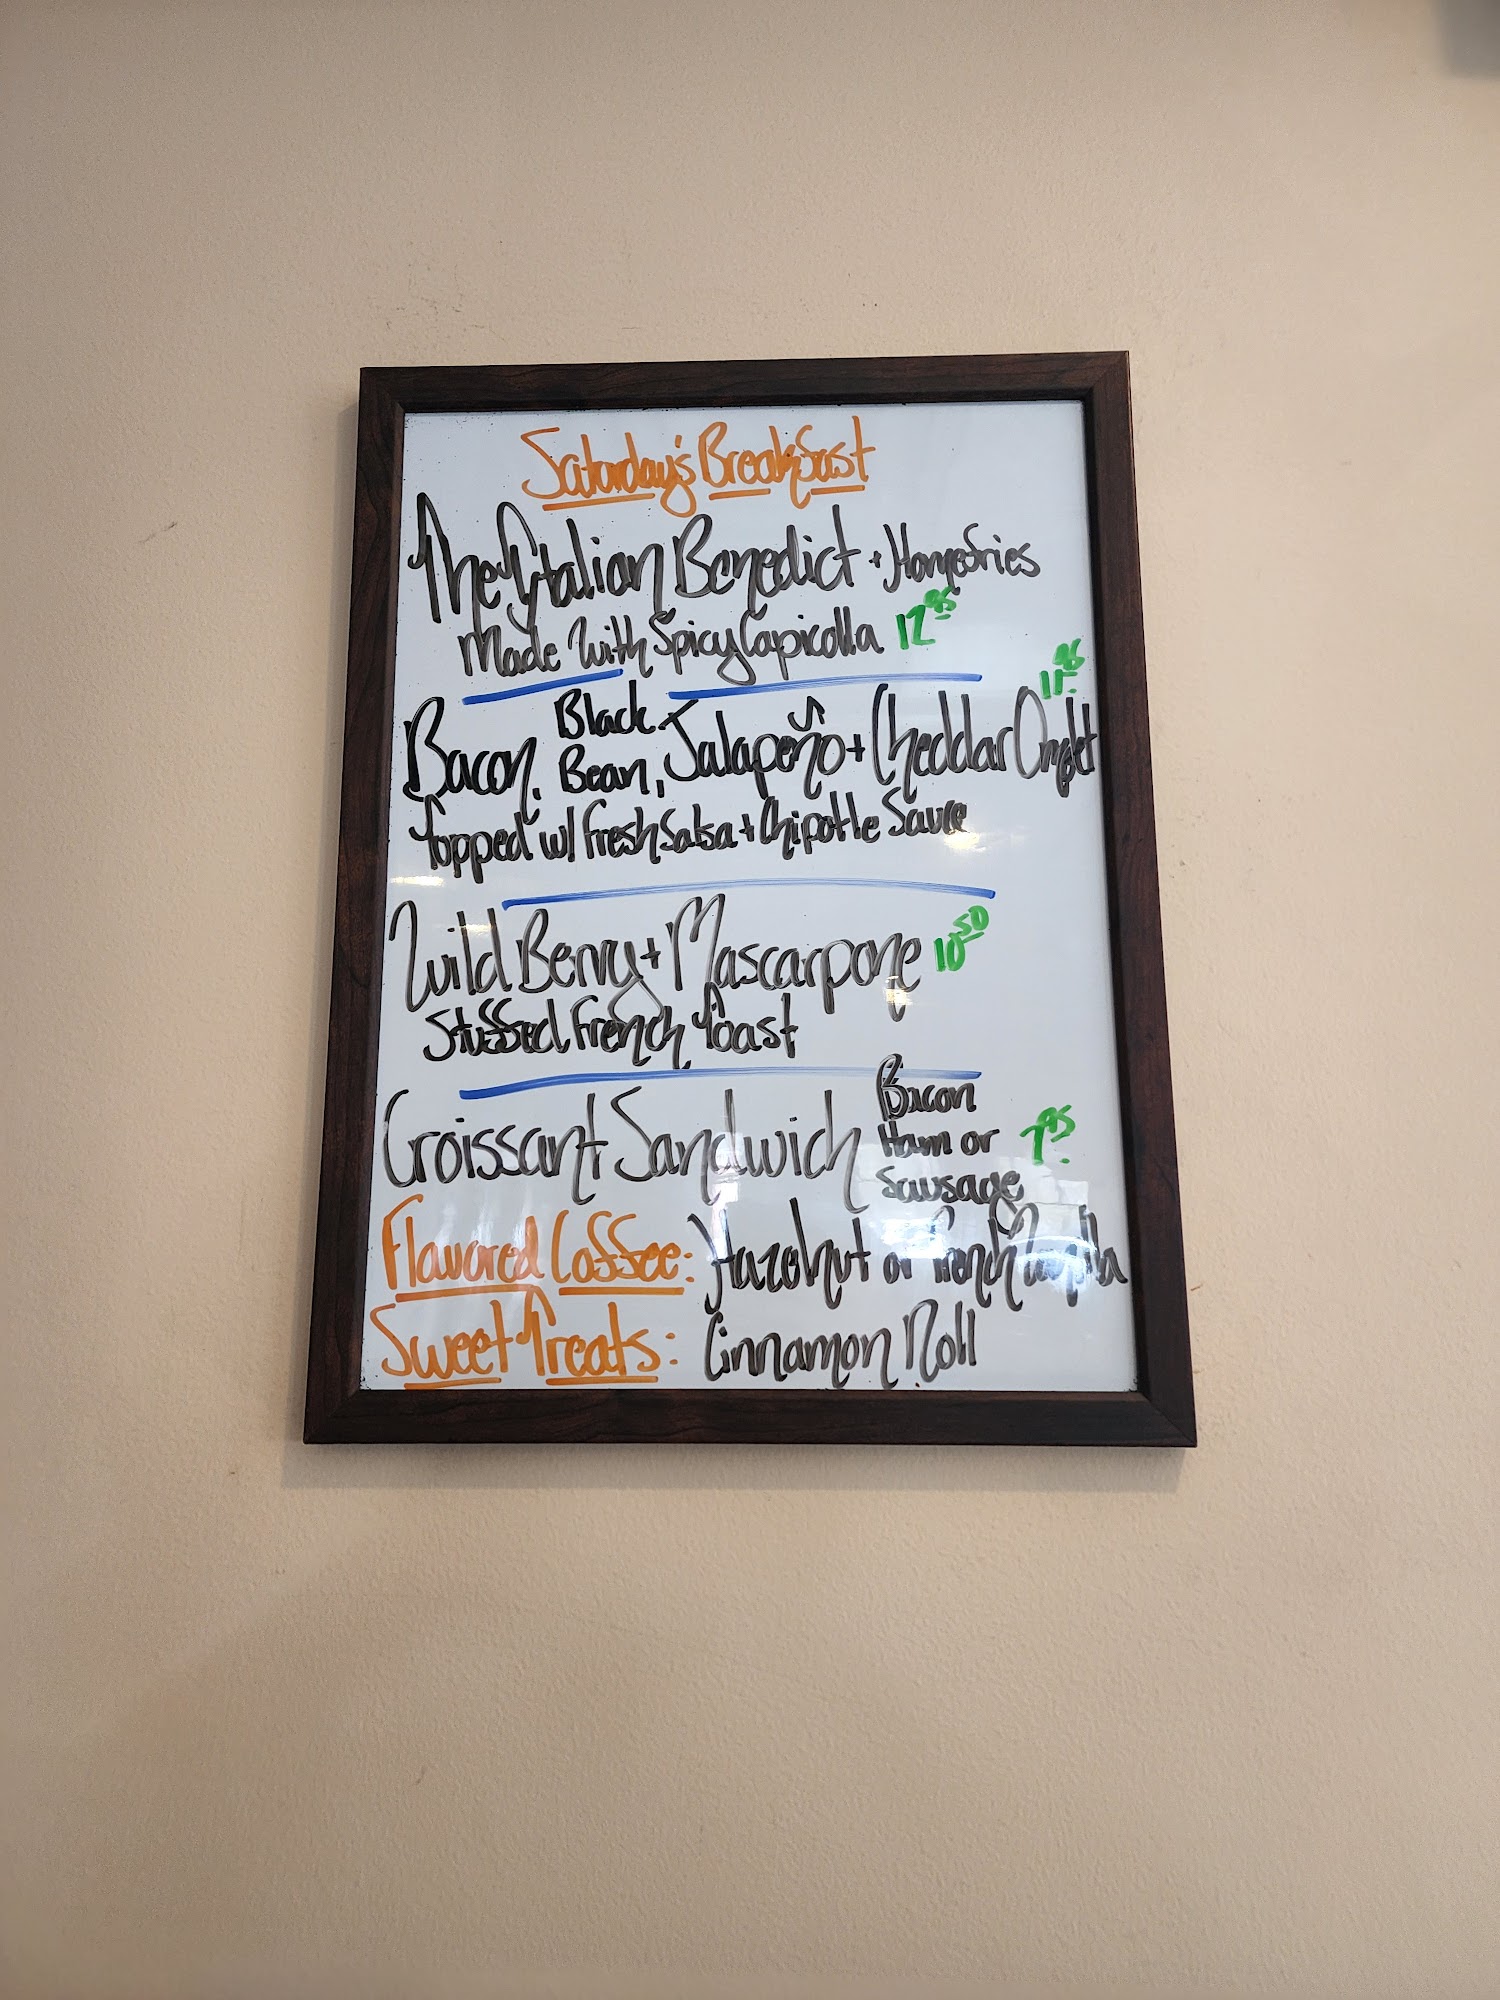 Saturday's Breakfast
The Italian Benedict + Homefries
Made With Spicy Capicolla 12.95
Bacon, Black Bean, Jalapeño + Cheddar Omlet 11.95
Topped w/ Fresh Salsa + Chipotle Sauce
Wild Berry + Mascarpone 10.50
Stuffed French Toast
Croissant Sandwich Bacon Ham or Sausage 7.95
Flavored Coffee: Hazelnut or French Vanilla
Sweet Treats: Cinnamon Roll